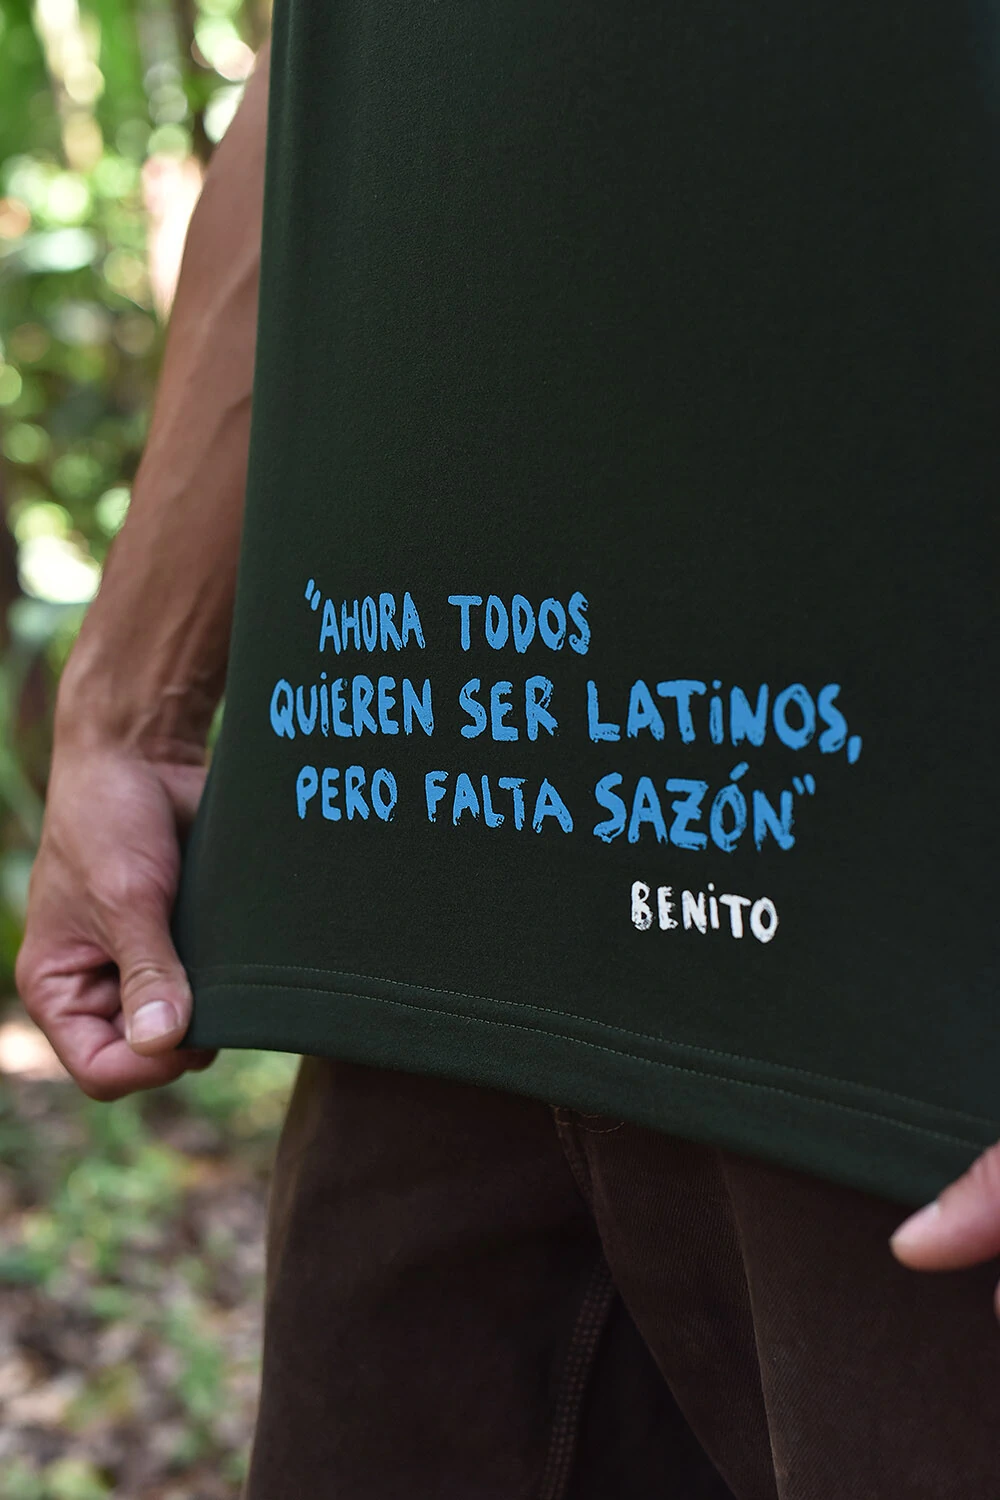 "AHORA TODOS
QUiEREN SER LATiNOS,
PERO FALTA SAZÓN"
BENiTO